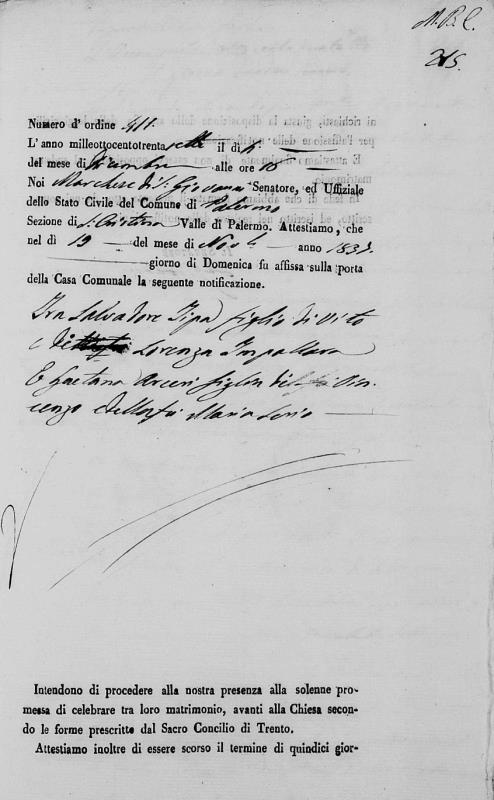 M. B. C.
215.
Numero d' ordine 411.
L' anno milleottocentotrenta sette il dì 4.
del mese di Dicembre alle ore 18
Noi Marchese di S. Giovanni Senatore, ed Uffiziale
dello Stato Civile del Comune di Palermo
Sezione di S. Cristina Valle di Palermo. Attestiamo, che
nel dì 19 del mese di Nov. anno 1837.
giorno di Domenica fu affissa sulla porta
della Casa Comunale la seguente notificazione.
Tra Salvadore Pipa figlio di Vito
e di Lorenza Impallara
E Gaetana Arceri figlia del Vin
cenzo e della Maria Serio
Intendono di procedere alla nostra presenza alla solenne pro-
messa di celebrare tra loro matrimonio, avanti alla Chiesa secon-
do le forme prescritte dal Sacro Concilio di Trento.
Attestiamo inoltre di essere scorso il termine di quindici gior-